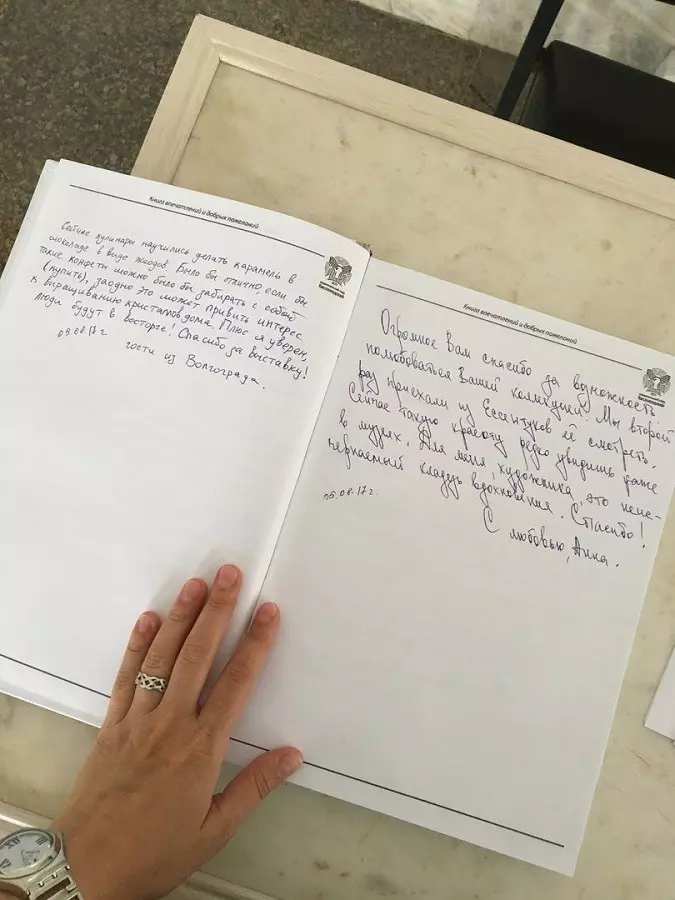 Книга впечатлений и добрых пожеланий
Сейчас кулинары научились делать карамель в
шоколаде в виде жеодов. Было бы отлично если бы
такие конфеты можно было бы забирать с собой
(купить), заодно это может привить интерес
к выращиванию кристаллов дома. Плюс я уверен,
люди будут в восторге! Спасибо за выставку!
09.08.17 г. гости из Волгограда.
Книга впечатлений и добрых пожеланий
Огромное Вам спасибо за возможность
полюбоваться Вашей коллекцией! Мы второй
раз приехали из Ессентуков её смотреть.
Сейчас такую красоту редко увидишь даже
в музеях. Для меня, художника, это неис-
черпаемый кладезь вдохновения. Спасибо!
09.08.17 г.
С любовью, Анна.